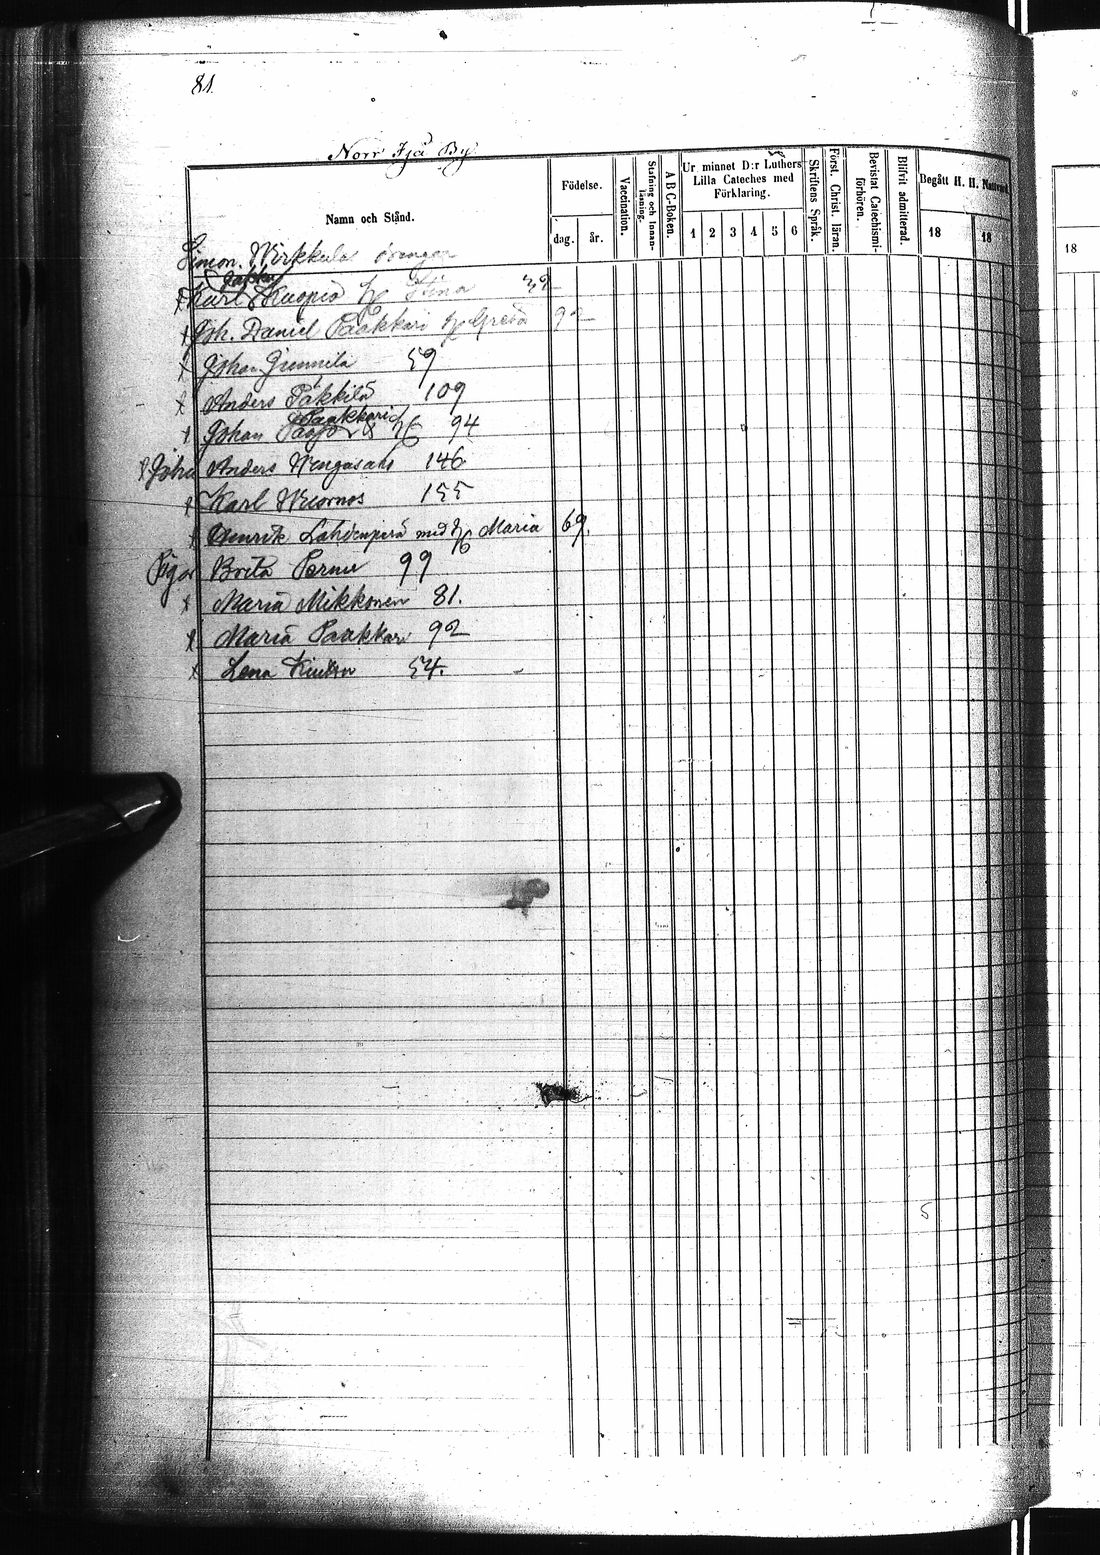 81.
Norr Ijå By
Namn och Stånd.
Födelse.
dag. år.
Vaccination.
Stafning och Innanläsning.
A B C-Boken.
Ur minnet D:r Luthers Lilla Cateches med Förklaring.
5
1 2 3 4 5 6
Skriftens Språk.
Först. Christ. läran.
Bevistat Catechismi-förhören.
Blifvit admitterad.
Begått H. H. Nattvard.
18 18
18
Simon Wirkkula
Karl Kuopio Stina 39
Joh. Daniel Paakkari Greta 92
Johan 59
Anders Päkkilä 109
Paakkari
Johan 94
Joha Anders 146
Karl 155
Henrik med Maria 69.
Pigor Brita 99
Maria Mikkonen 81.
Maria Paakkari 92
Lena 54.